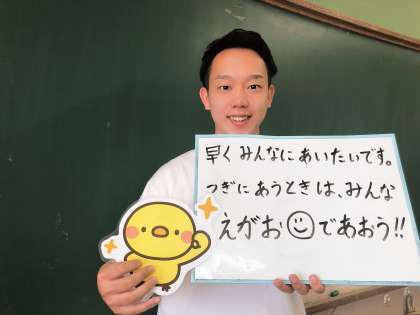 早くみんなにあいたいです。
つぎにあうときは、みんな
えがお☺であおう!!